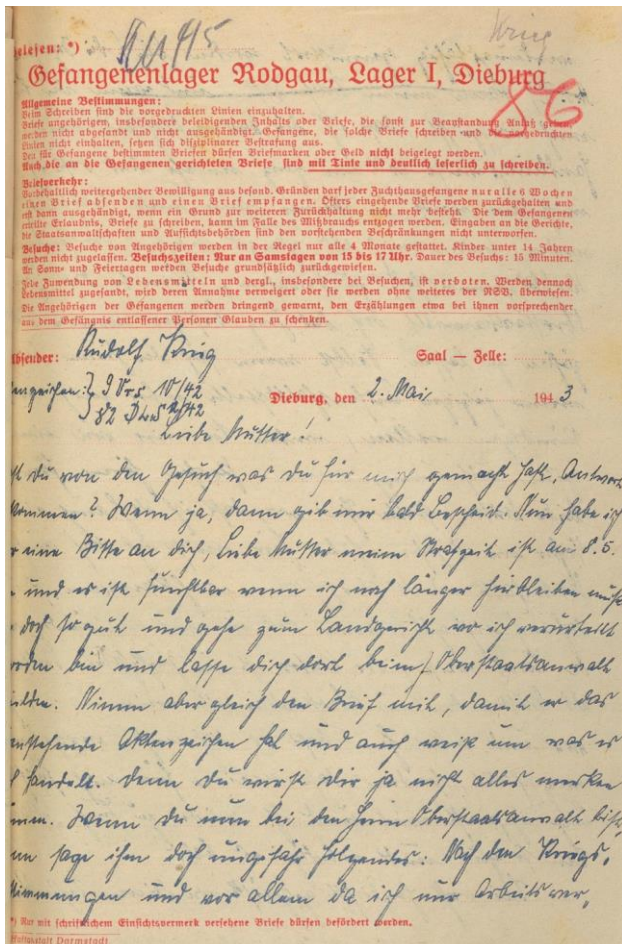 gelesen: *)
Krieg
Gefangenenlager Rodgau, Lager I, Dieburg
86
Allgemeine Bestimmungen:
Beim Schreiben sind die vorgedruckten Linien einzuhalten.
Briefe angehörigen, insbesondere beleidigenden Inhalts oder Briefe, die sonst zur Beanstandung Anlaß geben,
werden nicht abgesandt und nicht ausgehändigt. Gefangene, die solche Briefe schreiben und die vorgedruckten
Linien nicht einhalten, setzen sich disziplinarer Bestrafung aus.
Den für Gefangene bestimmten Briefen dürfen Briefmarken oder Geld nicht beigelegt werden.
Auch die an die Gefangenen gerichteten Briefe sind mit Tinte und deutlich leserlich zu schreiben.
Briefverkehr:
Vorbehaltlich weitergehender Bewilligung aus besond. Gründen darf jeder Zuchthausgefangene nur alle 6 Wochen
einen Brief absenden und einen Brief empfangen. Öfters eingehende Briefe werden zurückgehalten und
erst dann ausgehändigt, wenn ein Grund zur weiteren Zurückhaltung nicht mehr besteht. Die dem Gefangenen
erteilte Erlaubnis, Briefe zu schreiben, kann im Falle des Mißbrauchs entzogen werden. Eingaben an die Gerichte,
die Staatsanwaltschaften und Aufsichtsbehörden sind den vorstehenden Beschränkungen nicht unterworfen.
Besuche: Besuche von Angehörigen werden in der Regel nur alle 4 Monate gestattet. Kinder unter 14 Jahren
werden nicht zugelassen. Besuchszeiten: Nur an Samstagen von 15 bis 17 Uhr. Dauer des Besuchs: 15 Minuten.
An Sonn- und Feiertagen werden Besuche grundsätzlich zurückgewiesen.
Jede Zuwendung von Lebensmitteln und dergl., insbesondere bei Besuchen, ist verboten. Werden dennoch
Lebensmittel zugesandt, wird deren Annahme verweigert oder sie werden ohne weiteres der NSV. überwiesen.
Die Angehörigen der Gefangenen werden dringend gewarnt, den Erzählungen etwa bei ihnen vorsprechender
aus dem Gefängnis entlassener Personen Glauben zu schenken.
Absender: Rudolf Krieg Saal — Zelle:
enzeichen: 10/42
Dieburg, den 2. Mai 1943
Liebe Mutter!
st du von den Gesuch was du für mich gemacht hast, Antwort
kommen? Wenn ja, dann gib mir bald Bescheid. Nun habe ich
r eine Bitte an dich, Liebe Mutter meine Strafzeit ist am 8.5.
und es ist furchtbar wenn ich noch länger hierbleiben muß
doch so gut und gehe zum Landgericht wo ich verurteilt
orden bin und lasse dich dort beim Oberstaatsanwalt
elden. Nimm aber gleich den Brief mit, damit er das
enstehende Aktenzeichen hat und auch weiß um was es
h handelt. Denn du wirst dir ja nicht alles merken
nnen. Wenn du nun bei den Herrn Oberstaatsanwalt bist,
nn sage ihm doch ungefähr folgendes: Nach den Kriegs-
stimmungen und vor allem da ich nur Arbeitsver-
*) Nur mit schriftlichem Einsichtsvermerk versehene Briefe dürfen befördert werden.
Haftanstalt Darmstadt